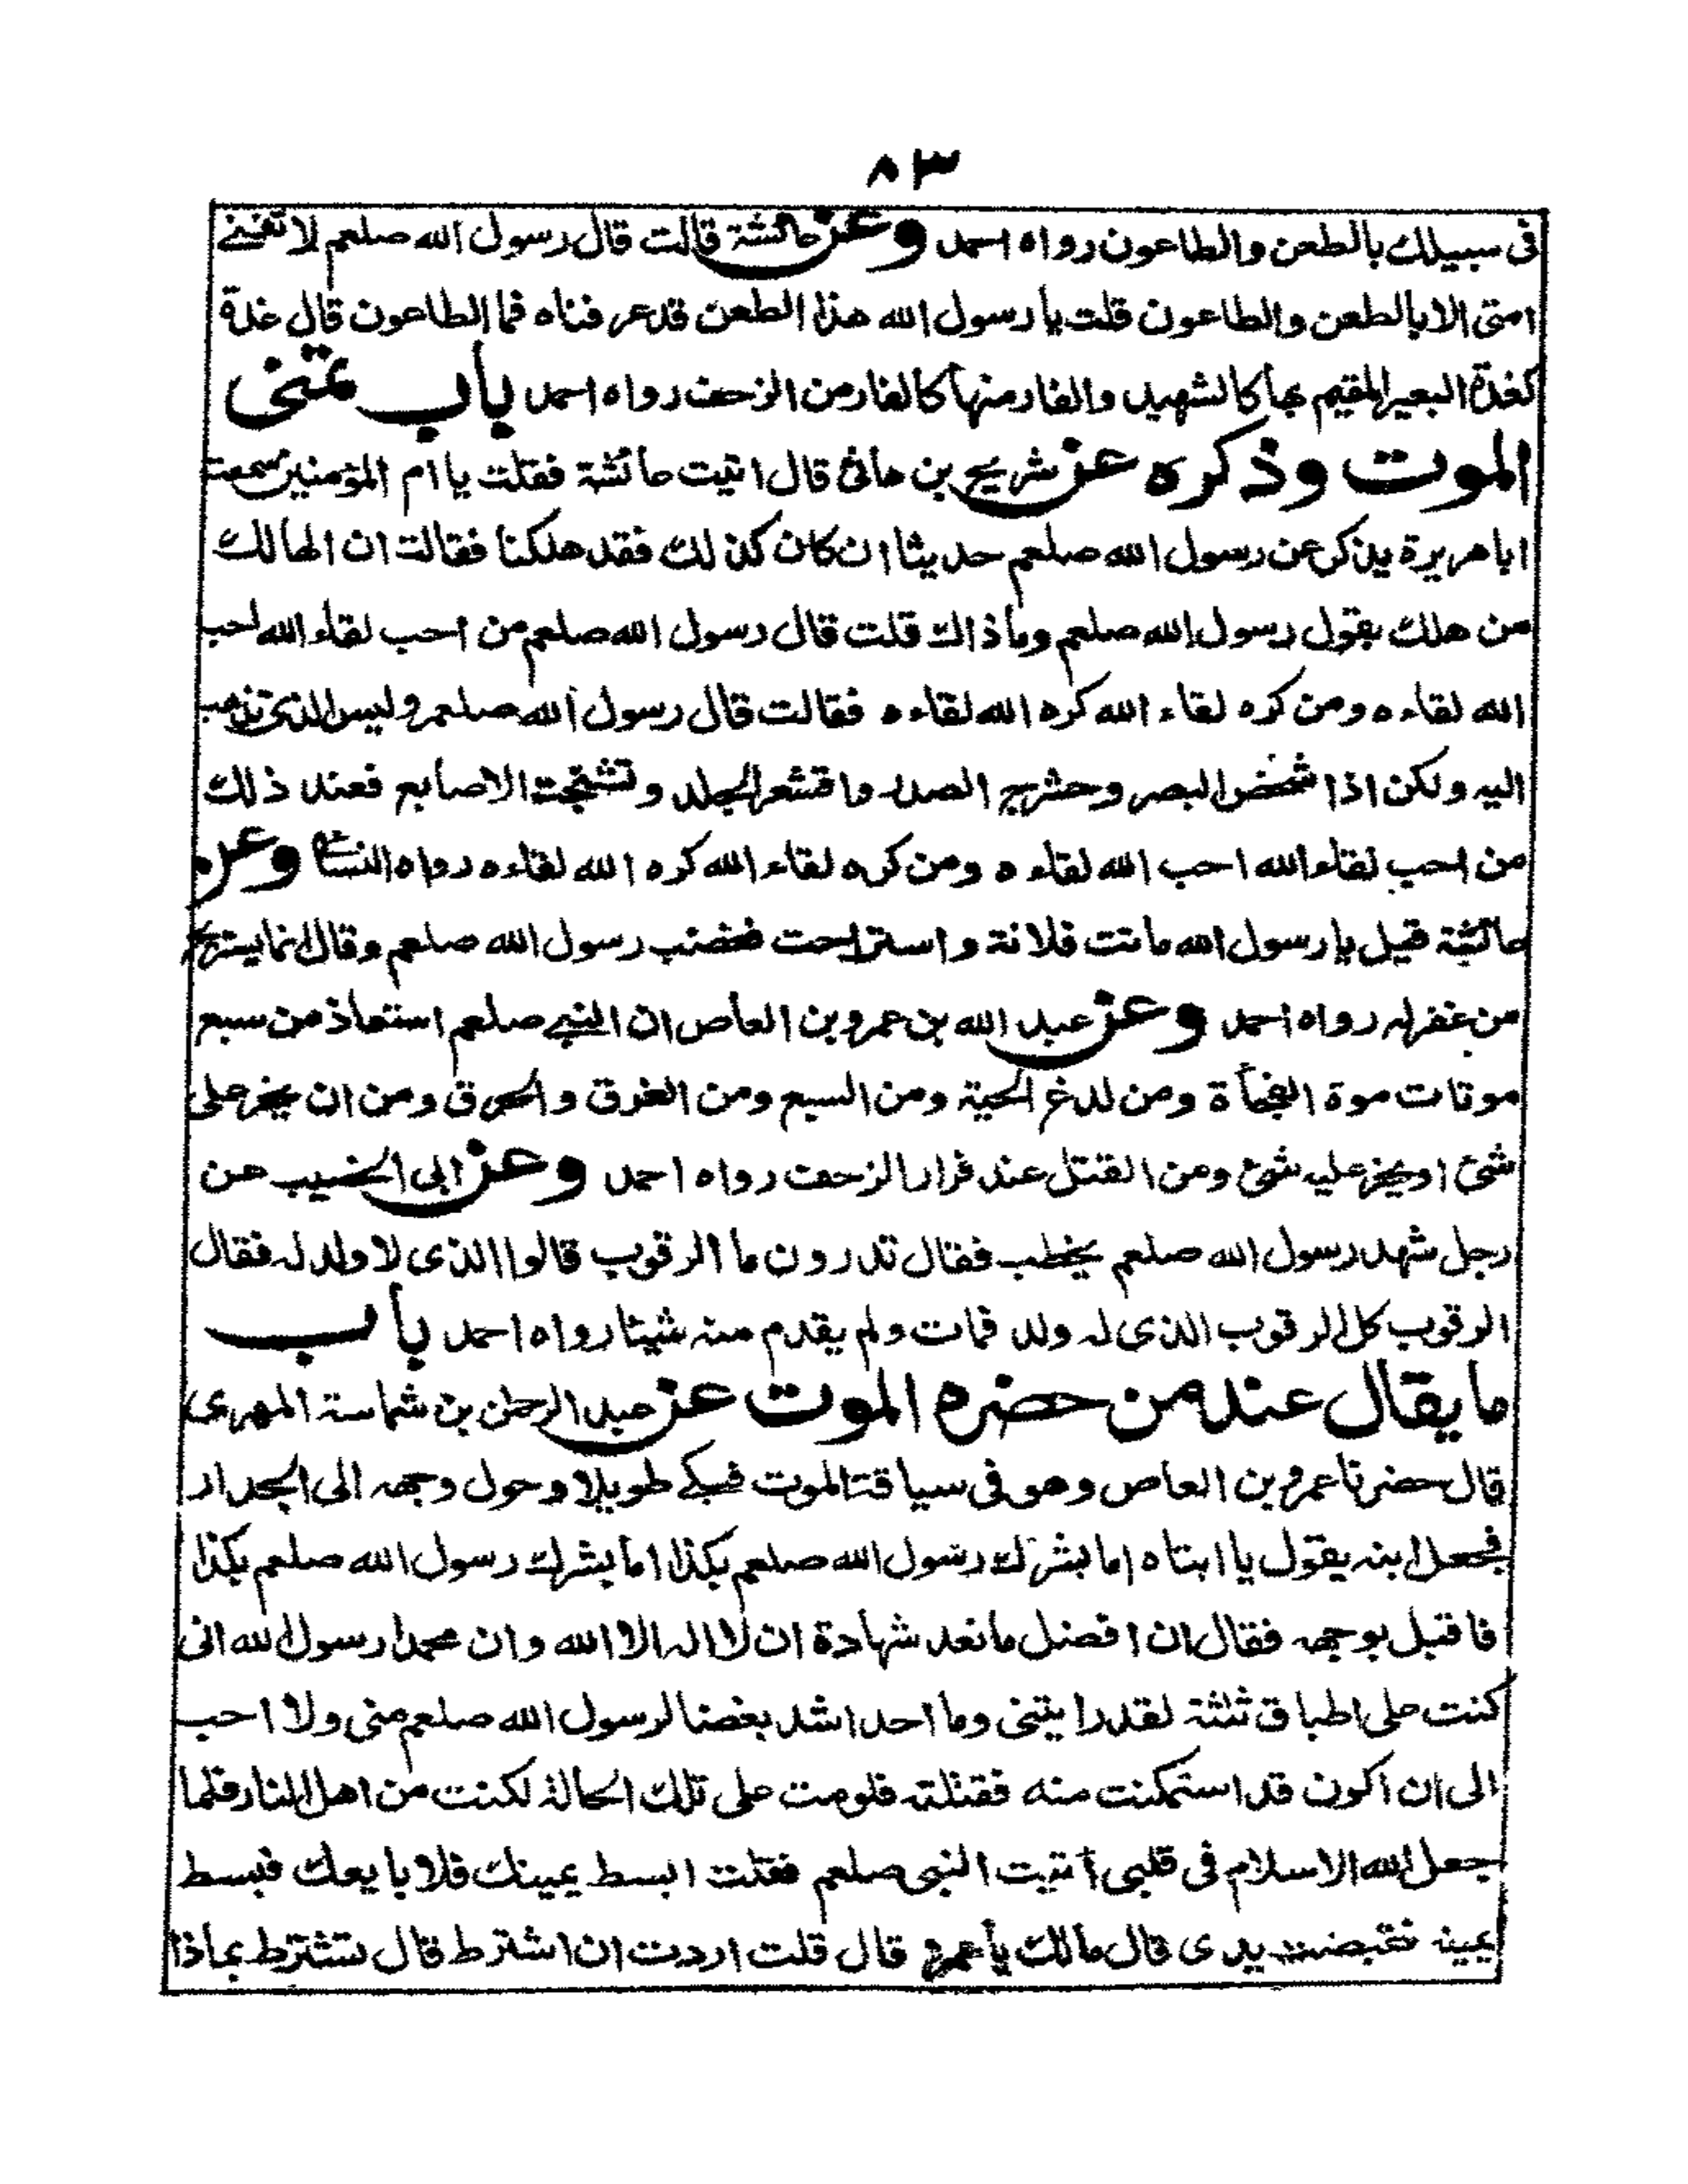 ٨٣
فى سبيلك بالطعن والطاعون رواه احمد وعن عائشة قالت قال رسول الله صلعم لا تفنى
امتى الا بالطعن والطاعون قلت يا رسول الله هذا الطعن قد عرفناه فما الطاعون قال غدة
كغدة البعير المقيم بها كالشهيد والفار منها كالفار من الزحف رواه احمد باب تمنى
الموت وذكره عن شريح بن هانئ قال اتيت عائشة فقلت يا ام المؤمنين سمعت
ابا هريرة يذكر عن رسول الله صلعم حديثا ان كان كذلك فقد هلكنا فقالت ان الهالك
من هلك بقول رسول الله صلعم وما ذاك قلت قال رسول الله صلعم من احب لقاء الله احب
الله لقاءه ومن كره لقاء الله كره الله لقاءه فقالت قال رسول الله صلعم وليس الذى تذهب
اليه ولكن اذا شخض البصر وحشرج الصدر واقشعر الجلد وتشنجت الاصابع فعند ذلك
من احب لقاء الله احب الله لقاءه ومن كره لقاء الله كره الله لقاءه رواه النسائى وعن
عائشة قيل يا رسول الله ماتت فلانة واستراحت فغضب رسول الله صلعم وقال انما يستريح
من غفر له رواه احمد وعن عبد الله بن عمرو بن العاص ان النبى صلعم استعاذ من سبع
موتات موة الفجأة ومن لدغ الحية ومن السبع ومن الغرق والحرق ومن ان يخر على
شئ او يخر عليه شئ ومن القتل عند فرار الزحف رواه احمد وعن ابى الخصيب عن
رجل شهد رسول الله صلعم يخطب فقال تدرون ما الرقوب قالوا الذى لا ولد له فقال
الرقوب كل الرقوب الذى له ولد فمات ولم يقدم منه شيئا رواه احمد باب
ما يقال عند من حضره الموت عن عبد الرحمن بن شماسة المهرى
قال حضرنا عمرو بن العاص وهو فى سياقة الموت فبكى طويلا وحول وجهه الى الجدار
فجعل ابنه يقول يا ابتاه اما بشرك رسول الله صلعم بكذا اما بشرك رسول الله صلعم بكذا
فاقبل بوجهه فقال ان افضل ما نعد شهادة ان لا اله الا الله وان محمدا رسول الله انى
كنت على اطباق ثلثة لقد رايتنى وما احد اشد بغضا لرسول الله صلعم منى ولا احب
الى ان اكون قد استمكنت منه فقتلته فلو مت على تلك الحالة لكنت من اهل النار فلما
جعل الله الاسلام فى قلبى أتيت النبى صلعم فقلت ابسط يمينك فلابايعك فبسط
يمينه فقبضت يدى قال مالك يا عمرو قال قلت اردت ان اشترط قال تشترط بماذا